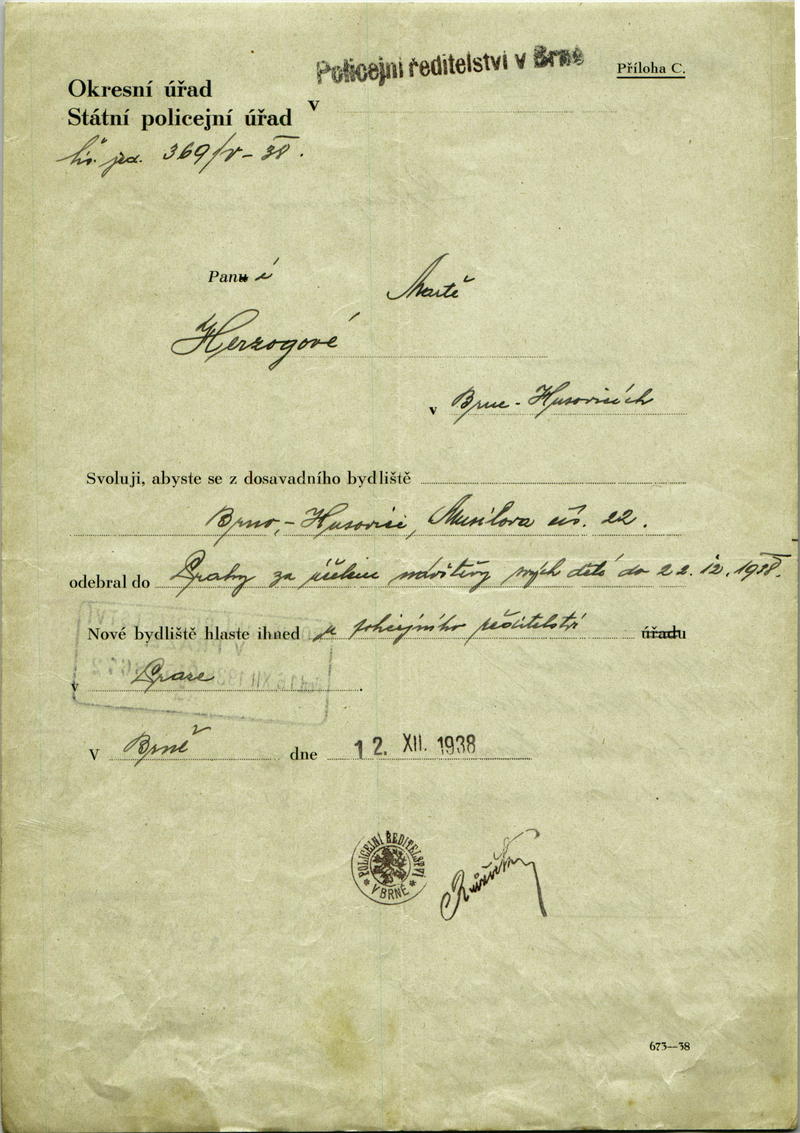 Policejní ředitelství v Brně
Příloha C.
Okresní úřad
Státní policejní úřad v
čís. jed. 369/V-38.
Paní
Martě
Herzogové
v Brně-Husovicích
Svoluji, abyste se z dosavadního bydliště
Brno,-Husovice, Musilova čís. 22.
odebral do Prahy za účelem návštěvy svých dětí do 22.12.1938.
Nové bydliště hlaste ihned u policejního ředitelství úřadu
v Praze
16 XII 1938
V Brně dne 12. XII. 1938
POLICEJNÍ ŘEDITELSTVÍ
V BRNĚ
673—38